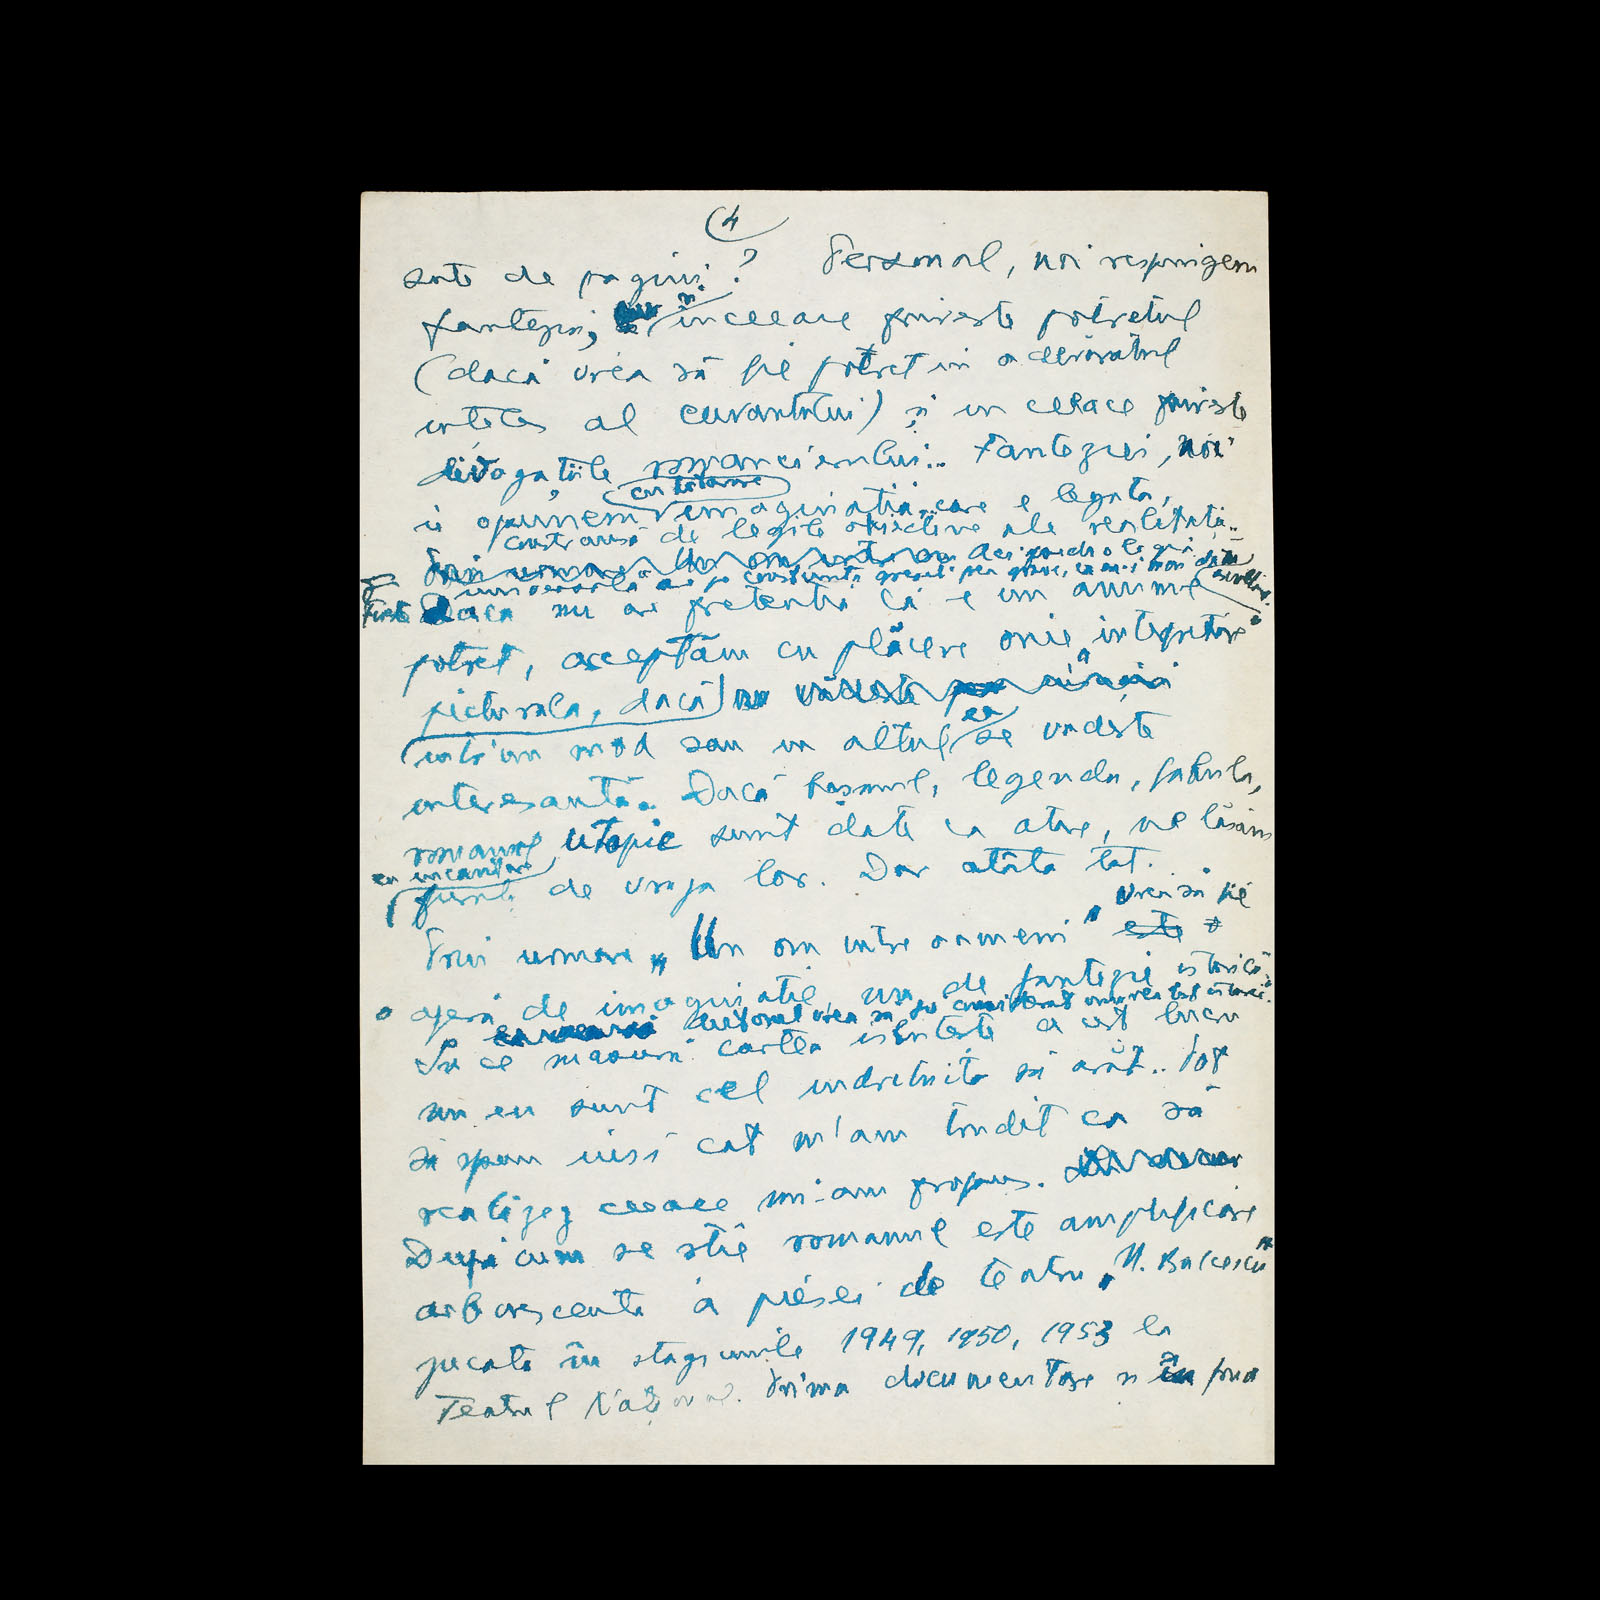 4
sute de pagini? Personal, noi respingem
fantezia, și în ceeace privește potretul
(daca vrea să fie potret in adevăratul
inteles al cuvantului) și in ceeace priveste
divagațiile romancierului.. Fanteziei, noi
cu hotarire
ii opunem imaginația.. care e legata,
constransă de legile obiective ale realitatii..
Daca nu are pretentia că e un anume
potret, acceptăm cu plăcere orice „intepretare"
picturala, daca
intr'un mod sau in altul ea se vadeste
interesantă. Dacă basmul, legenda, fabula,
romanul utopic sunt date ca atare, ne lăsăm
cu incantare
furati de vraja lor. Dar atâta tot.
vrea să fie
Prin urmare „Un om intre oameni" este
o operă de imaginatie, nu de fantezie istorică.
autorul vrea sa fie considerat
In ce masură cartea isbuteste acest lucru
nu eu sunt cel indretuit să arăt.. Pot
să spun insă cat m'am trudit ca să
realizez ceeace mi-am propus.
După cum se stie romanul este amplificare
arborescentă a piesei de teatru „N. Balcescu"
jucată în stagiunile 1949, 1950, 1953 la
Teatrul Național. Prima documentare